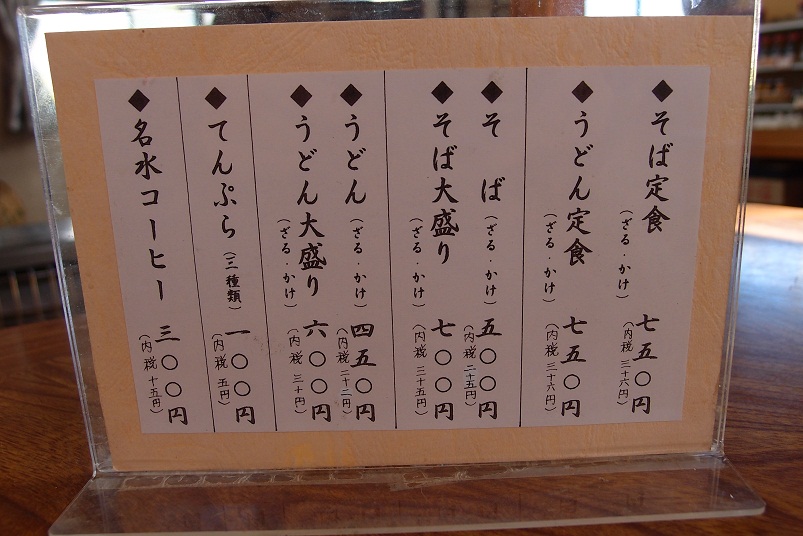 ◆そば定食
(ざる・かけ)
七五〇円
(内税 三十六円)
◆うどん定食
(ざる・かけ)
七五〇円
(内税 三十六円)
◆そば(ざる・かけ)五〇〇円
(内税 二十五円)
◆そば大盛り
(ざる・かけ)
七〇〇円
(内税 三十五円)
◆うどん(ざる・かけ)四五〇円
(内税 二十二円)
◆うどん大盛り
(ざる・かけ)
六〇〇円
(内税 三十円)
◆てんぷら(三種類)一〇〇円
(内税 五円)
◆名水コーヒー 三〇〇円
(内税 十五円)